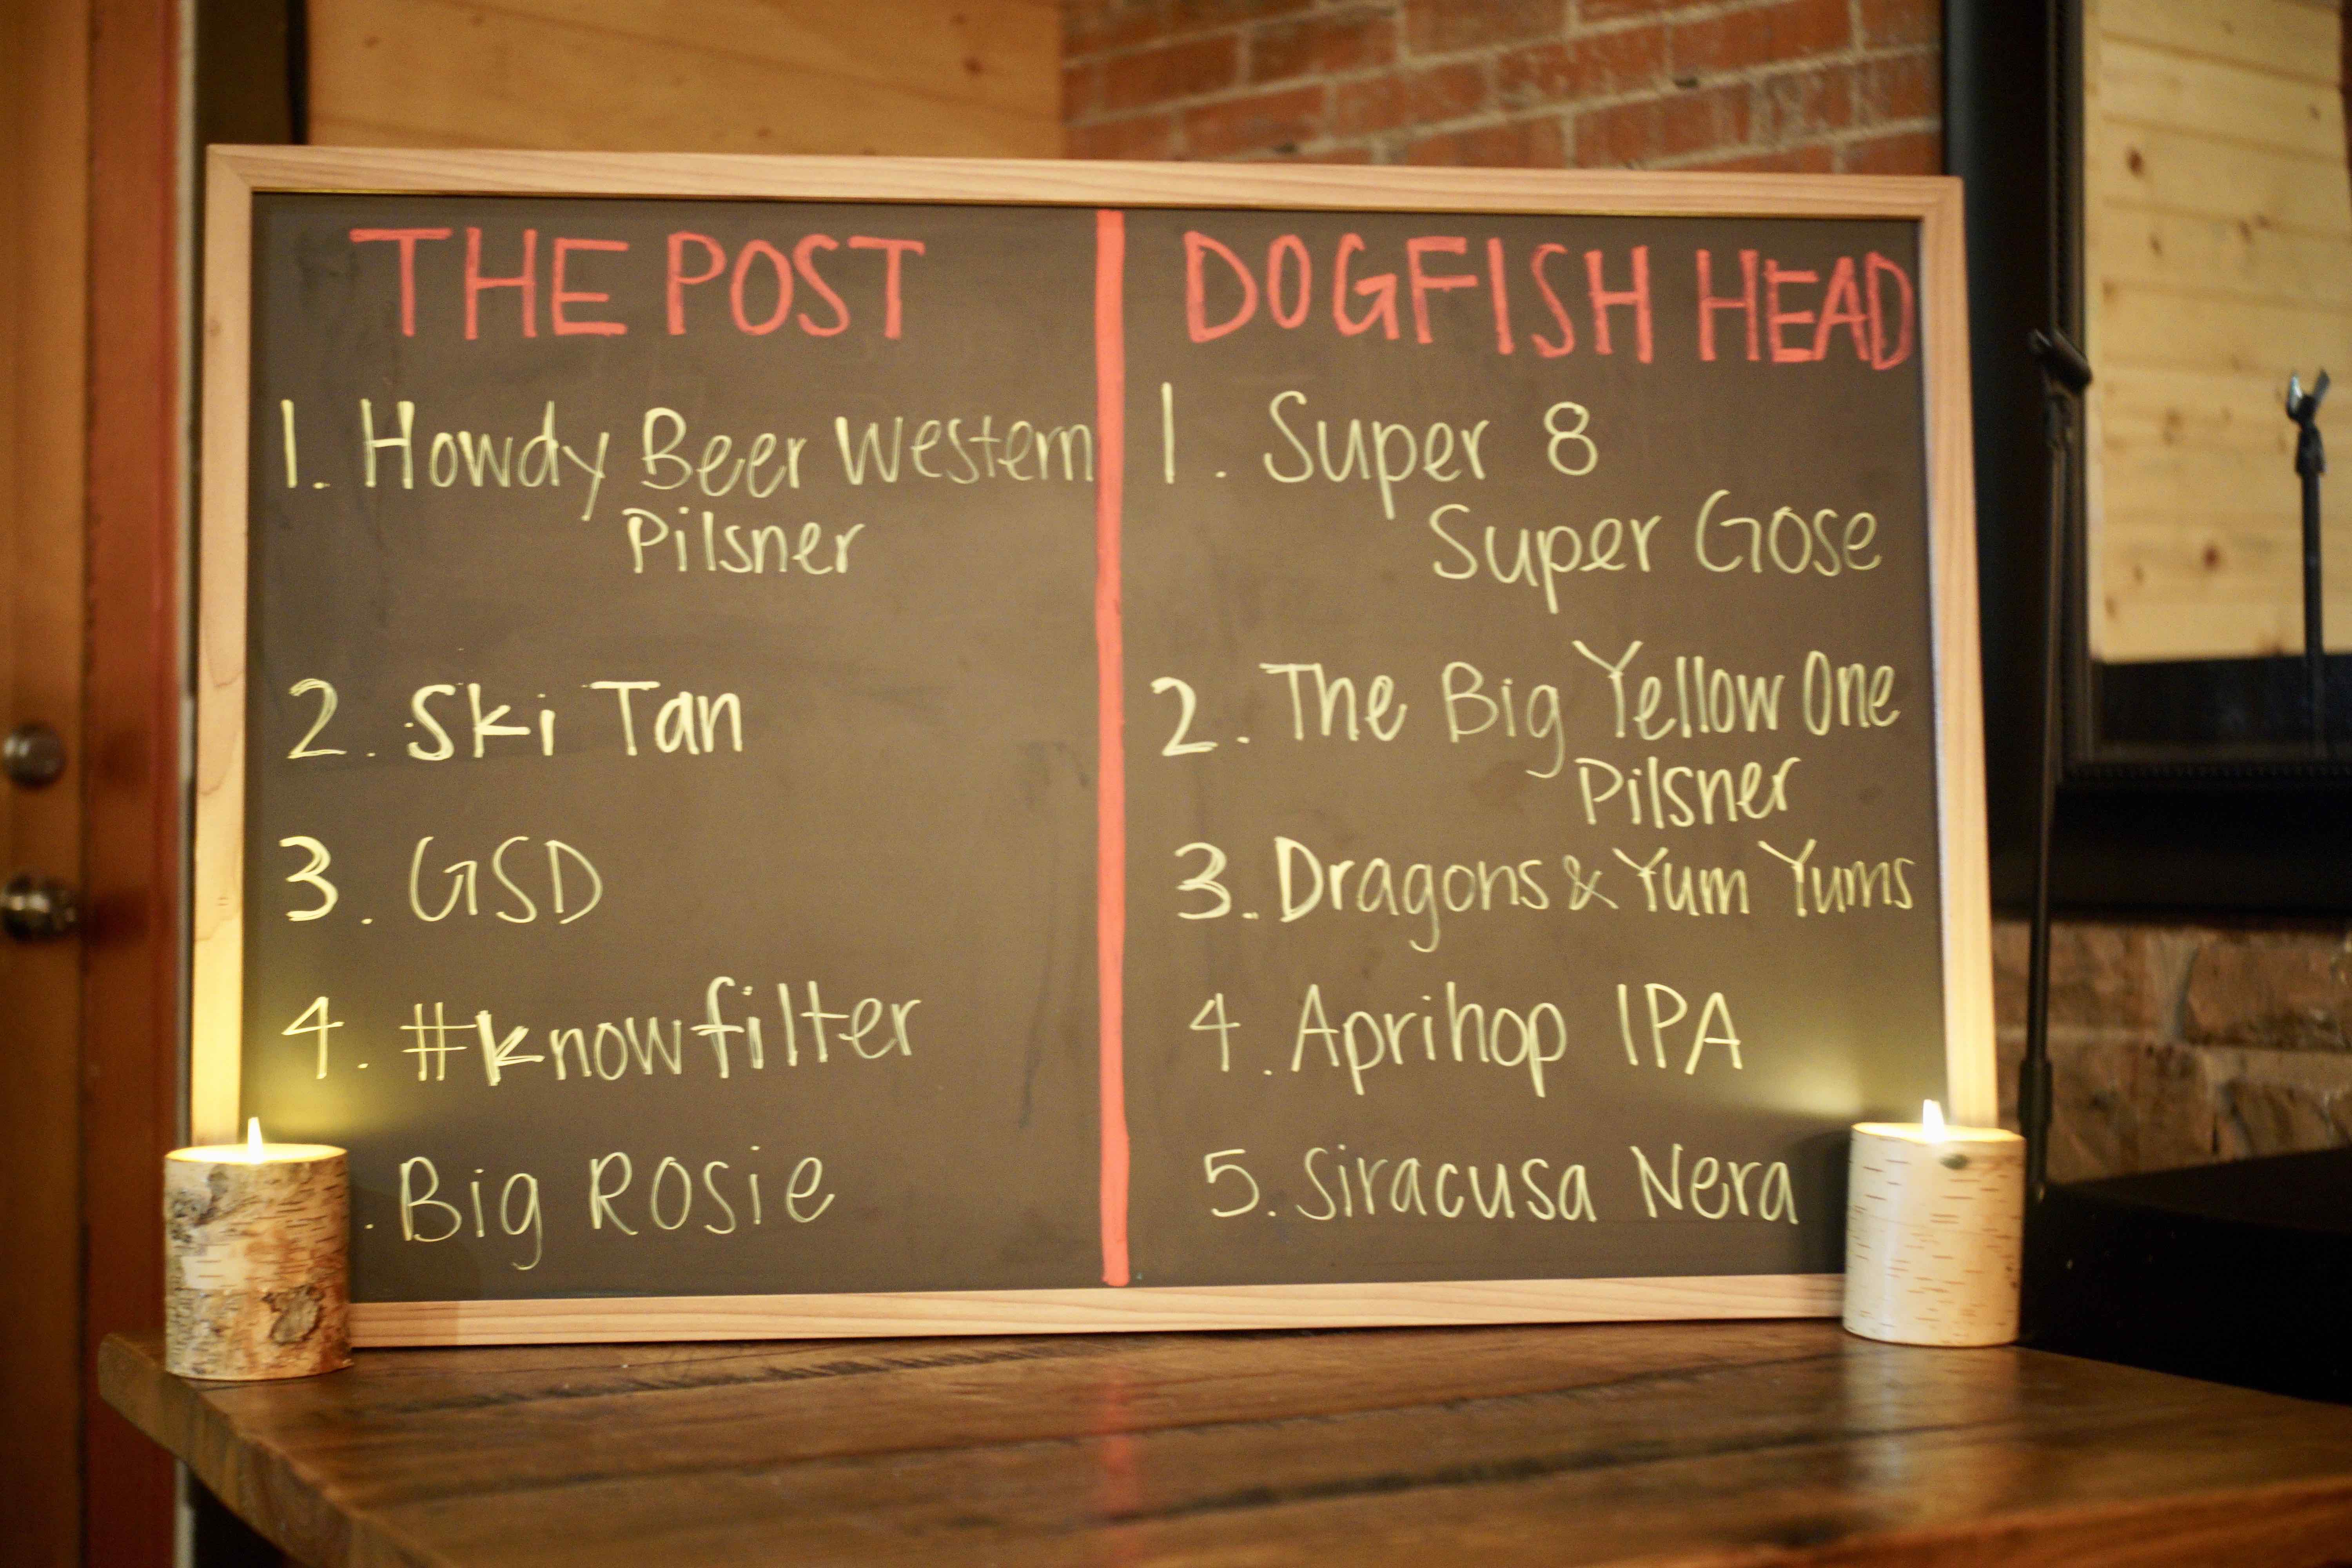 THE POST
1. Howdy Beer Western
Pilsner
2. Ski Tan
3. GSD
4. #knowfilter
. Big Rosie
DOGFISH HEAD
1. Super 8
Super Gose
2. The Big Yellow One
Pilsner
3. Dragons & Yum Yums
4. Aprihop IPA
5. Siracusa Nera